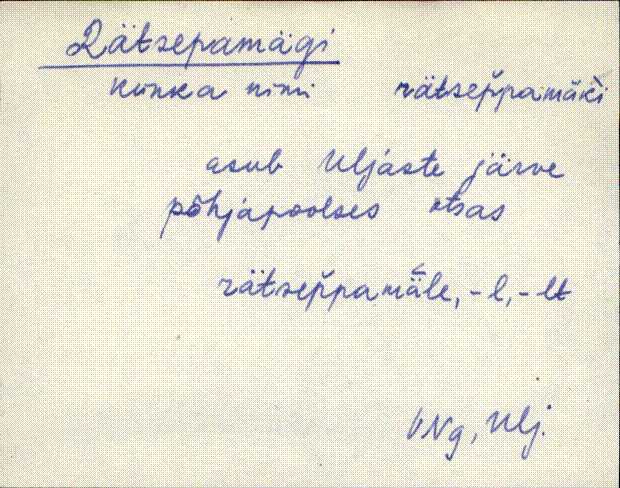 Rätsepamägi
künka nimi rätsep̆pamäk̆i
asub Uljaste järve
põhjapoolses otsas
rätsep̆pamäle, -l, -lt
VNg, Ulj.